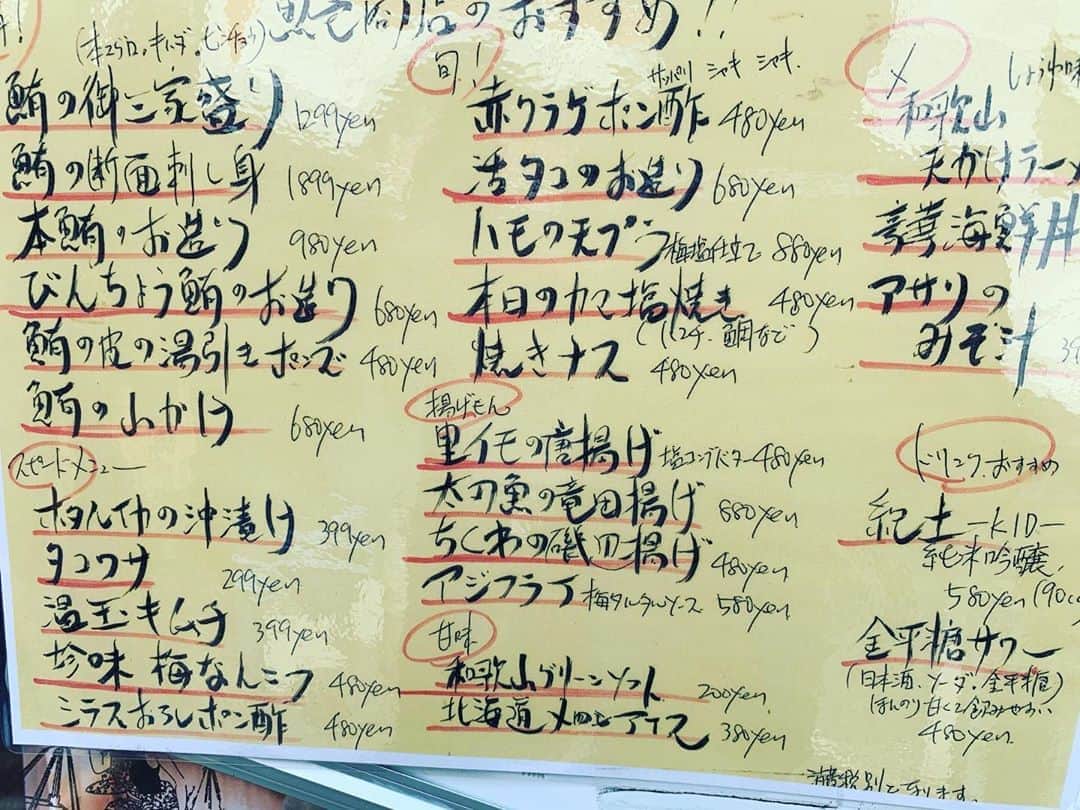 のおすすめ!!
(本マグロ、キハダ、ビンチョウ)
鮪の御三家盛り 1299yen
鮪の断面刺し身 1899yen
本鮪のお造り 980yen
びんちょう鮪のお造り 680yen
鮪の皮の湯引きポンズ 480yen
鮪の山かけ 680yen
スピードメニュー
ホタルイカの沖漬け 399yen
タコワサ 299yen
温玉キムチ 399yen
珍味 梅なんこつ 480yen
シラスおろしポン酢 480yen
旬!
サッパリ シャキ シャキ
赤クラゲポン酢 480yen
活タコのお造り 680yen
ハモの天プラ 梅塩仕立て 880yen
本日のカマ塩焼き 480yen
(ハマチ、鯛など)
焼きナス 480yen
揚げもん
里イモの唐揚げ 塩コンブバター 480yen
太刀魚の竜田揚げ 880yen
ちくわの磯辺揚げ 480yen
アジフライ 梅タルタルソース 580yen
甘味
和歌山グリーンソフト 200yen
北海道メロンアイス 380yen
〆
しょうゆ味
和歌山
天かけラーメ
豪華海鮮丼
アサリの
みそ汁
ドリンクおすすめ
紀土 -KID-
純米吟醸
580yen (90cc
金平糖サワー
(日本酒、ソーダ、金平糖)
ほんのり甘くて飲みやすい
480yen
消費税別となります。